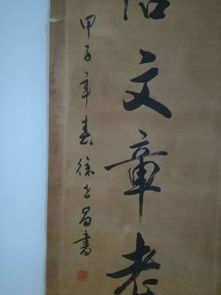 文章老
甲子年春徐世昌書